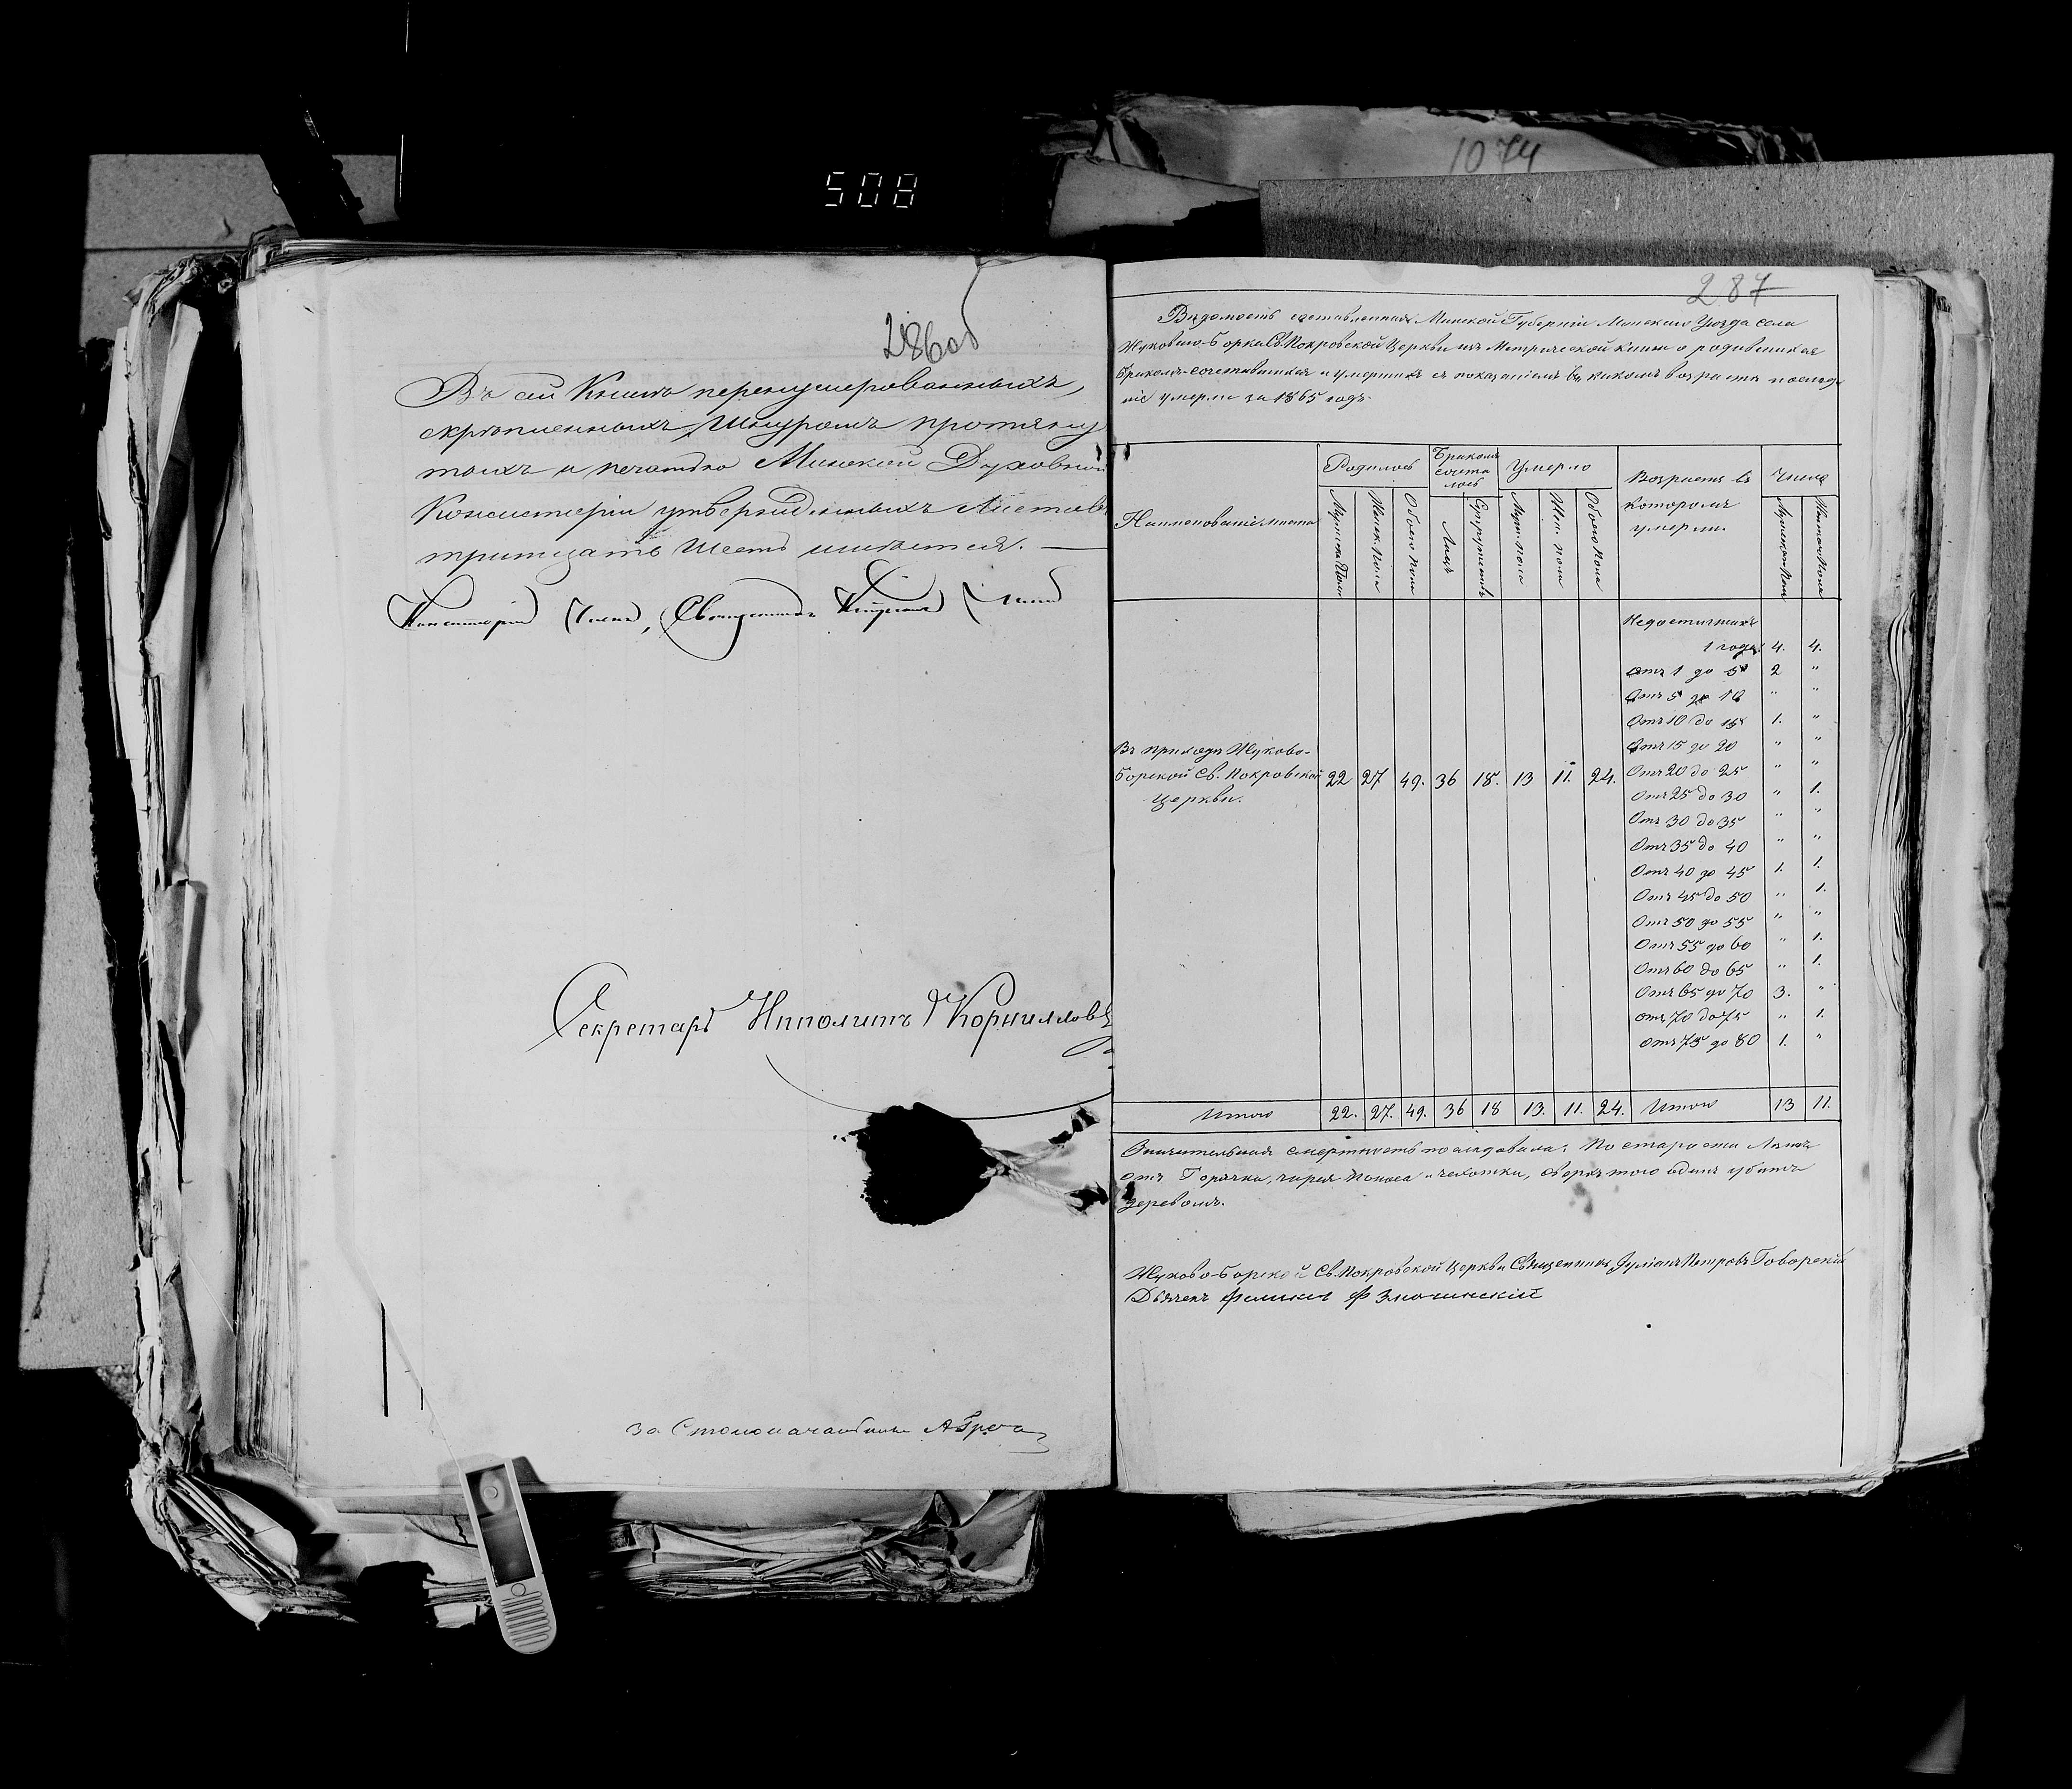 1074
508
286об
Въ сей Книгѣ перенумерованныхъ,
скрѣпленныхъ, шнуромъ протяну
тыхъ и печатью Минской Духовной
Консисторіи утвержденныхъ листовъ
тритцать шесть имѣется. —
Консисторіи Членъ, Священникъ
Секретарь Ипполитъ Корнилловъ
за Столоначальника
287
Вѣдомость составленная Минской Губерніи Минскаго Уѣзда села
Жуковаго-Борка Св. Покровской Церкви изъ Метрической книги о родившихся
бракомъ-сочетавшихся и умершихъ съ показаніемъ въ какомъ возрастѣ послѣд
ніе умерли за 1865 годъ.
Наименованіе мѣста
Родилось
Бракомъ
сочета
лось
Умерло
Возрастъ въ
которомъ
умерли.
Число
Мужска Пола
Женск. Пола
Обоего Пола
Лицъ
Супружествъ
Муж. пола
Жен. пола
Обоего Пола
Мужскаго Пола
Женскаго Пола
Недостигшихъ
1 года 4. 4.
Отъ 1 до 5 2 "
Отъ 5 до 10 " "
Отъ 10 до 15 1. "
Отъ 15 до 20 " "
Въ приходѣ Жуково-
Борской Св. Покровской
Церкви.
22 27 49. 36 18. 13 11. 24.
Отъ 20 до 25 " "
Отъ 25 до 30 " 1.
Отъ 30 до 35 " "
Отъ 35 до 40 " "
Отъ 40 до 45 1. 1.
Отъ 45 до 50 " 1.
Отъ 50 до 55 " "
Отъ 55 до 60 " 1.
Отъ 60 до 65 " 1.
Отъ 65 до 70 3. "
Отъ 70 до 75 " 1.
Отъ 75 до 80 1. "
Итого 22. 27. 49. 36 18 13. 11. 24. Итого 13 11.
Значительная смертность послѣдовала: По старости Лѣтъ
отъ Горячки, чирея поноса и чехотки, сверхъ того одинъ убитъ
деревомъ.
Жуково-Борской Св. Покровской Церкви Священникъ Іуліанъ Петровъ Говорскій
Дьячекъ Феликсъ Ф